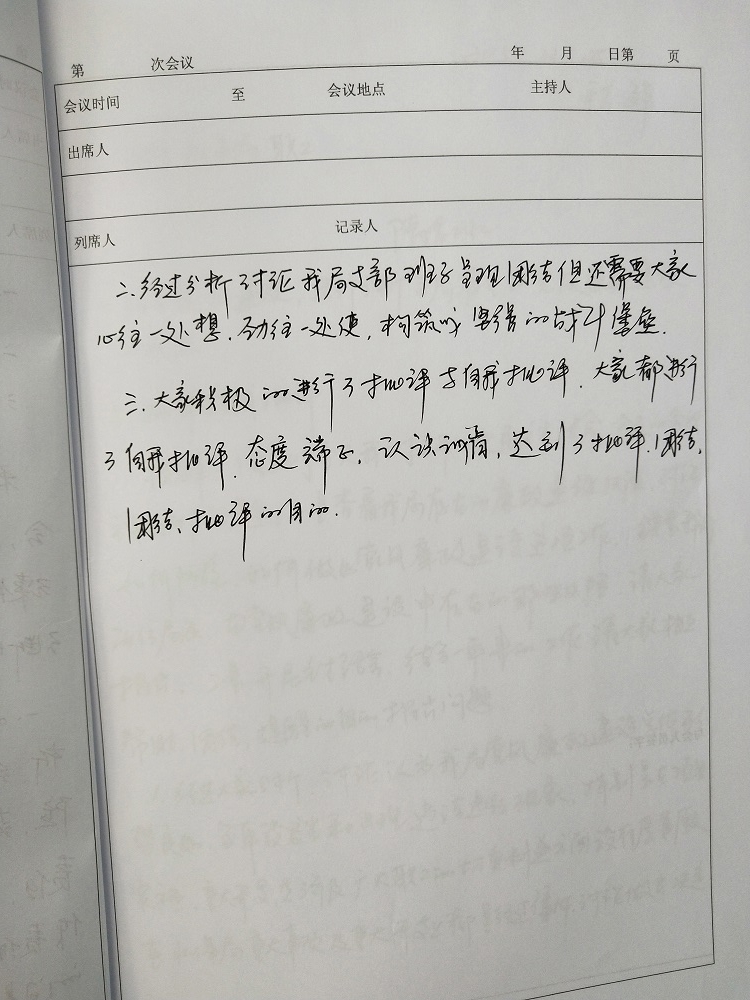 第 次会议 年 月 日第 页
会议时间 至 会议地点 主持人
出席人
列席人 记录人
二、经过分析讨论我局支部班子呈现团结但还需要大家
心往一处想,劲往一处使,构筑成坚强的战斗堡垒.
三、大家积极的进行了批评与自我批评.大家都进行
了自我批评.态度端正,认识诚肯,达到了批评.团结,
团结、批评的目的.